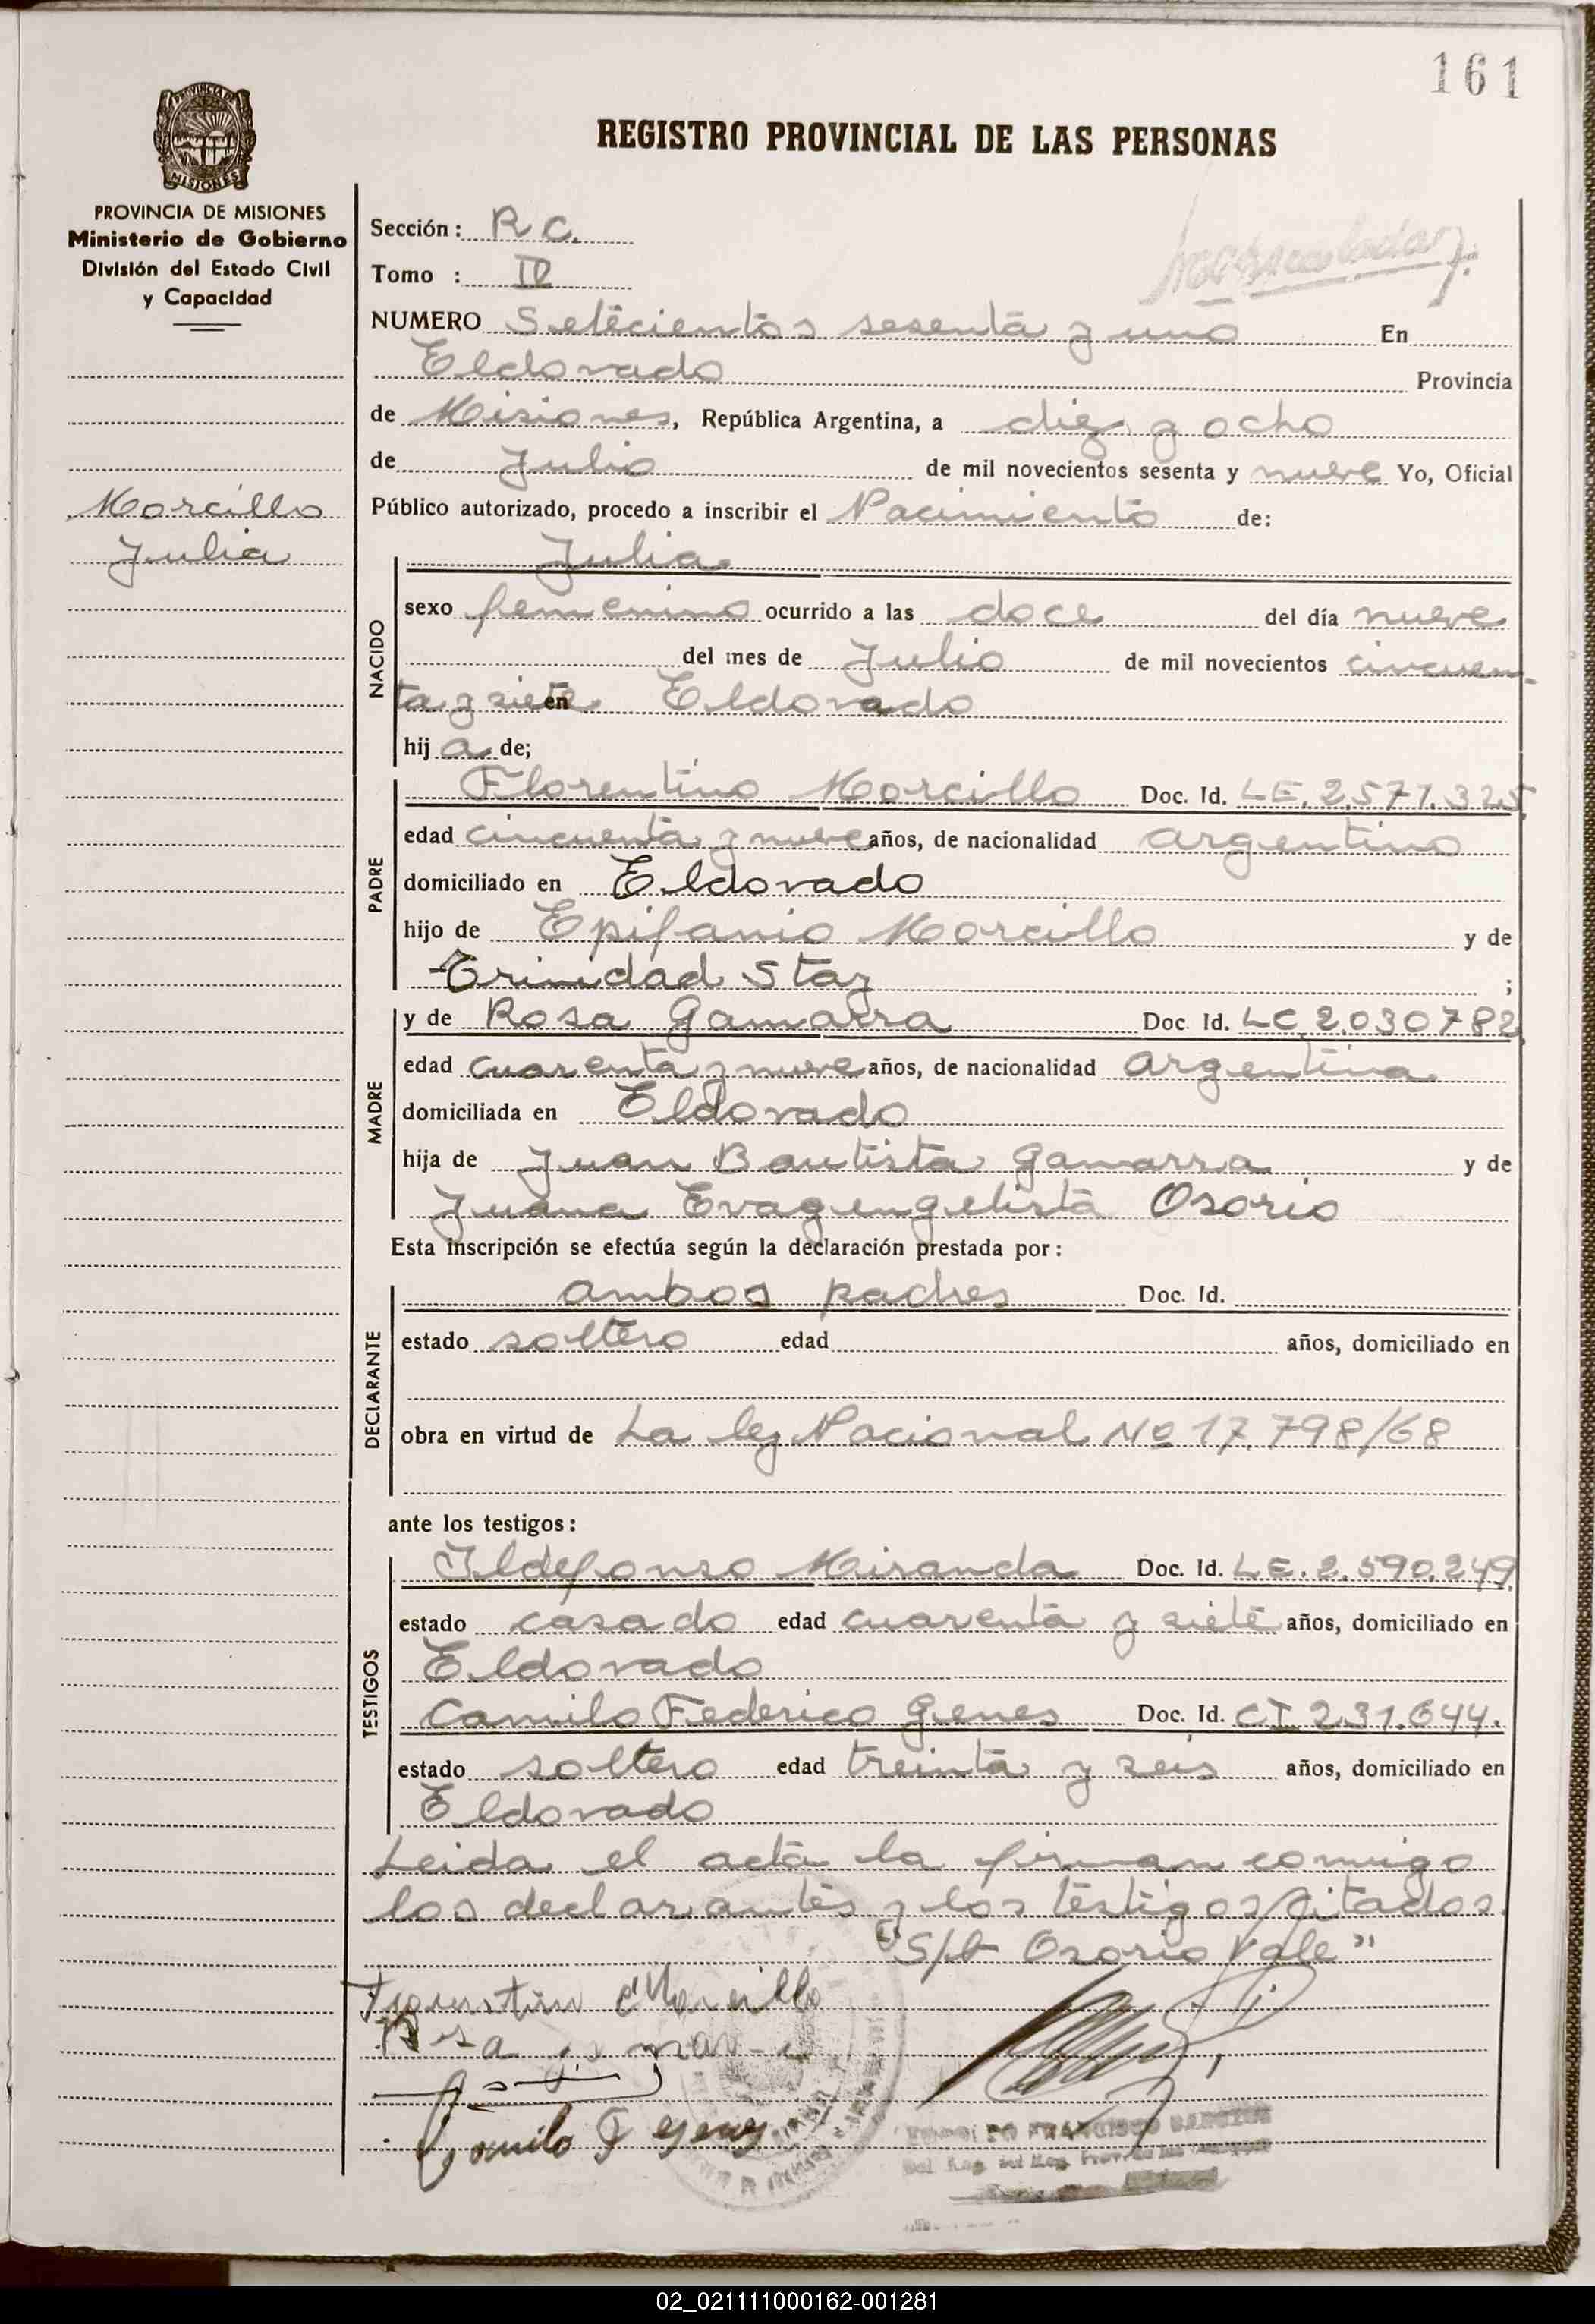 161
REGISTRO PROVINCIAL DE LAS PERSONAS
PROVINCIA DE MISIONES
PROVINCIA DE MISIONES
Ministerio de Gobierno
División del Estado Civil
y Capacidad
Morcillo
Julia
Sección: R C.
Tomo : IV
NUMERO Setecientos sesenta y uno En
Eldorado Provincia
de Misiones, República Argentina, a diez y ocho
de Julio de mil novecientos sesenta y nueve Yo, Oficial
Público autorizado, procedo a inscribir el Nacimiento de:
NACIDO
Julia
sexo femenino ocurrido a las doce del día nueve
del mes de Julio de mil novecientos cincuen-
ta y siete en Eldorado
hij a de;
PADRE
Florentino Morcillo Doc. Id. LE. 2.571.325
edad cincuenta y nueve años, de nacionalidad argentino
domiciliado en Eldorado
hijo de Epifanio Morcillo y de
Trinidad Staz ;
MADRE
y de Rosa Gamarra Doc. Id. LC 2.030782
edad cuarenta y nueve años, de nacionalidad argentina
domiciliada en Eldorado
hija de Juan Bautista Gamarra y de
Juana Evagengelista Osorio
Esta inscripción se efectúa según la declaración prestada por:
DECLARANTE
ambos padres Doc. Id.
estado soltero edad años, domiciliado en
obra en virtud de La ley Nacional Nº 17.798/68
ante los testigos:
TESTIGOS
Ildefonso Miranda Doc. Id. LE. 2.590.249
estado casado edad cuarenta y siete años, domiciliado en
Eldorado
Camilo Federico Genes Doc. Id. CI 231.644.
estado soltero edad treinta y seis años, domiciliado en
Eldorado
Leida el acta la firman comigo
los declarantes y los testigos citados.
"S/b Osorio Vale"
Morcillo
Camilo F Genes
FRANCISCO
02_021111000162-001281